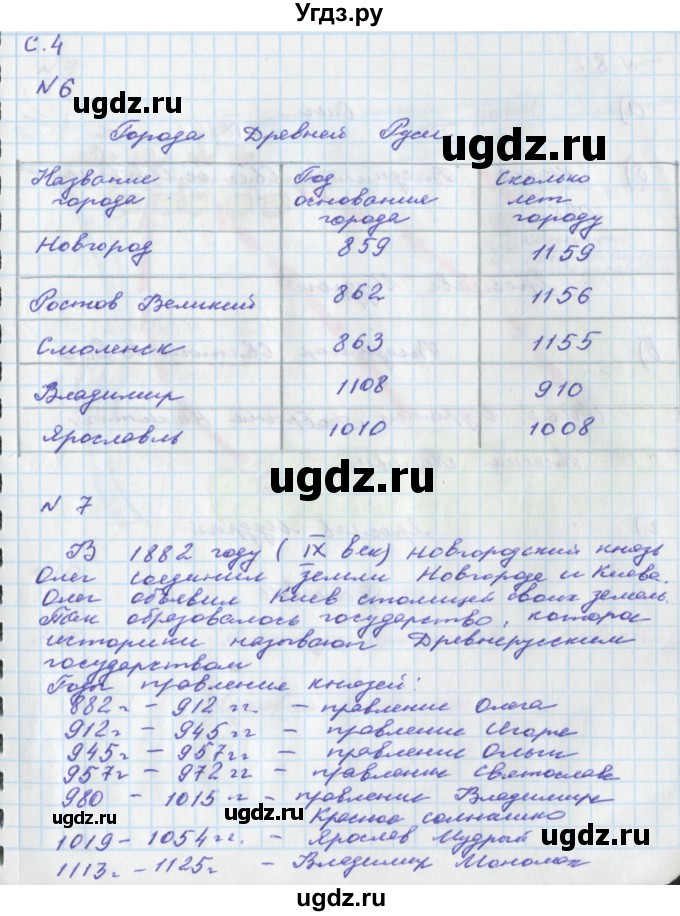 Угдз.ру
с. 4
N 6
Города Древней Руси
Название города | Год основания города | Сколько лет городу
Новгород | 859 | 1159
Ростов Великий | 862 | 1156
Смоленск | 863 | 1155
Владимир | 1108 | 910
Ярославль | 1010 | 1008
N 7
В 1882 году (IX век) Новгородский князь
Олег соединил земли Новгорода и Киева.
Олег объявил Киев столицей своих земель.
Так образовалось государство, которое
историки называют Древнерусским
государством
Годы правления князей:
882 г – 912 гг. – правление Олега
912 г – 945 гг – правление Игоря
945 г – 957 гг. – правление Ольги
957 г – 972 гг – правление Святослава
980 – 1015 г – правление Владимир
Красное солнышко
1019 – 1054 гг. – Ярослав Мудрый
1113 г – 1125 г – Владимир Мономах
ugdz.ru
ugdz.ru
ugdz.ru
ugdz.ru
ugdz.ru
ugdz.ru
ugdz.ru
ugdz.ru
ugdz.ru
ugdz.ru
ugdz.ru
ugdz.ru
ugdz.ru
ugdz.ru